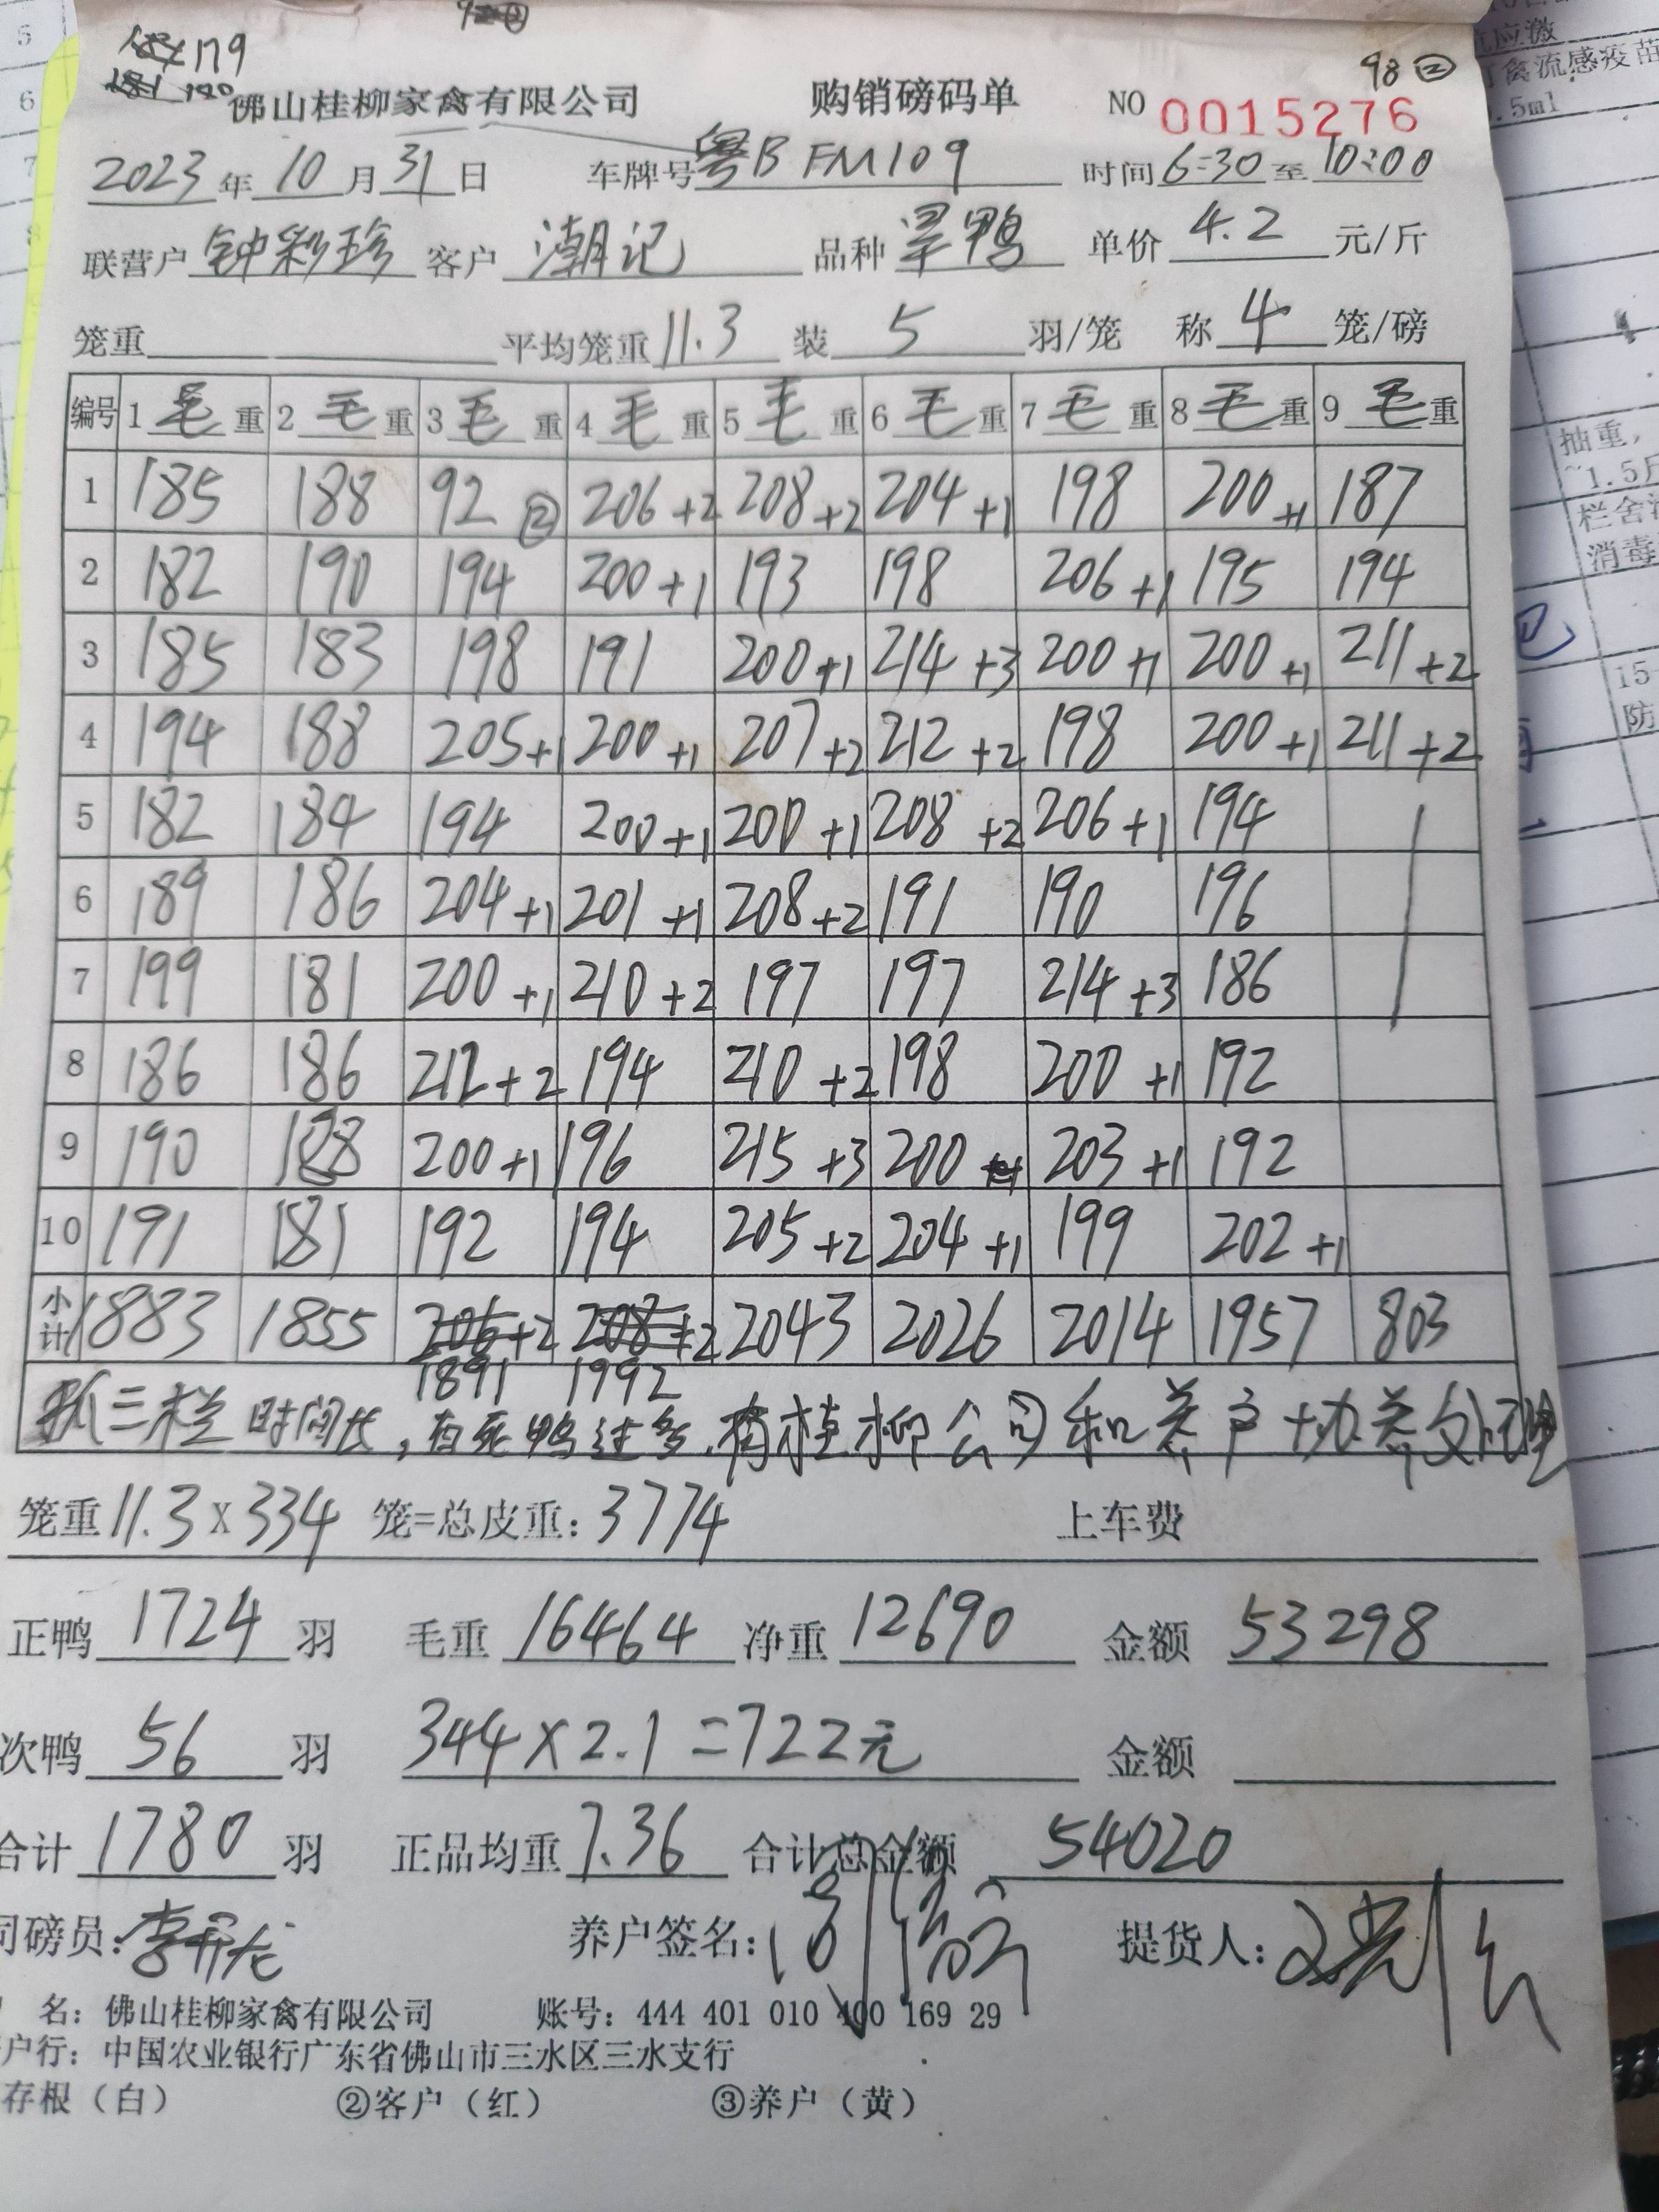 179
98 ②
佛山桂柳家禽有限公司 购销磅码单 NO 0015276
2023年10月31日 车牌号粤B FM109 时间6:30至10:00
联营户 钟彩珍 客户 潮记 品种 旱鸭 单价 4.2 元/斤
笼重 平均笼重 11.3 装 5 羽/笼 称 4 笼/磅
编号 1 毛 重 2 毛 重 3 毛 重 4 毛 重 5 毛 重 6 毛 重 7 毛 重 8 毛 重 9 毛 重
1 185 188 92 ② 206+2 208+2 204+1 198 200+1 187
2 182 190 194 200+1 193 198 206+1 195 194
3 185 183 198 191 200+1 214+3 200+1 200+1 211+2
4 194 188 205+1 200+1 207+2 212+2 198 200+1 211+2
5 182 184 194 200+1 200+1 208+2 206+1 194
6 189 186 204+1 201+1 208+2 191 190 196
7 199 181 200+1 210+2 197 197 214+3 186
8 186 186 212+2 194 210+2 198 200+1 192
9 190 188 200+1 196 215+3 200 203+1 192
10 191 181 192 194 205+2 204+1 199 202+1
小计 1883 1855 206+2 208+2 2043 2026 2014 1957 803
1891 1992
抓三栏时间长,有死鸭过多,有桂柳公司和养户协养处理
笼重 11.3×334 笼=总皮重: 3774 上车费
正鸭 1724 羽 毛重 16464 净重 12690 金额 53298
次鸭 56 羽 344×2.1=722元 金额
合计 1780 羽 正品均重 7.36 合计总金额 54020
司磅员: 养户签名: 提货人:
名: 佛山桂柳家禽有限公司 账号: 444 401 010 400 169 29
户行: 中国农业银行广东省佛山市三水区三水支行
存根（白） ②客户（红） ③养户（黄）
应激
禽流感疫苗
.5ml
抽重,
~1.5斤
栏舍
消毒
15
防
5
6
7
8